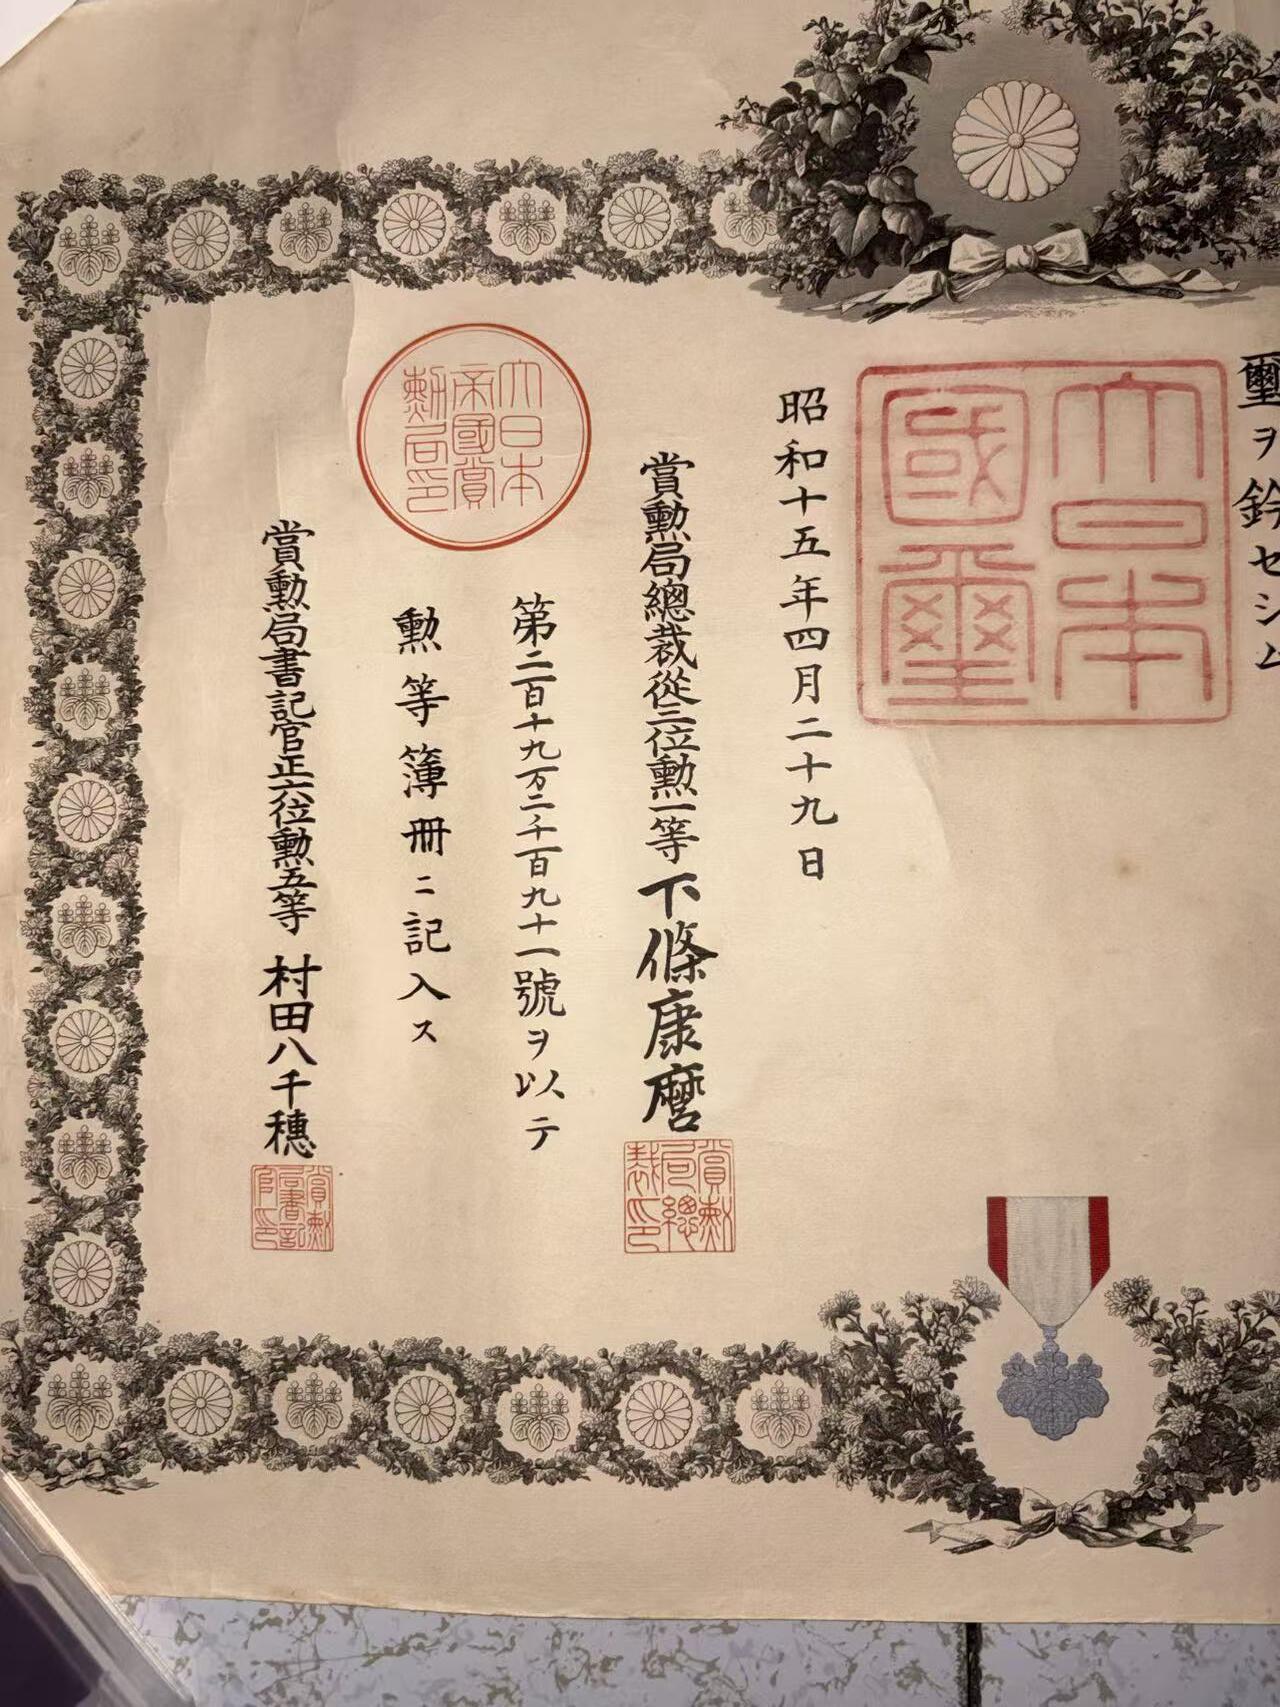 璽ヲ鈐セシム
大日本國璽
昭和十五年四月二十九日
賞勲局總裁從三位勲一等下條康麿
賞勲局總裁印
第二百十九万二千百九十一號ヲ以テ
勲等簿冊ニ記入ス
大日本帝國賞勲局印
賞勲局書記官正六位勲五等 村田八千穗
賞勲局書記官印